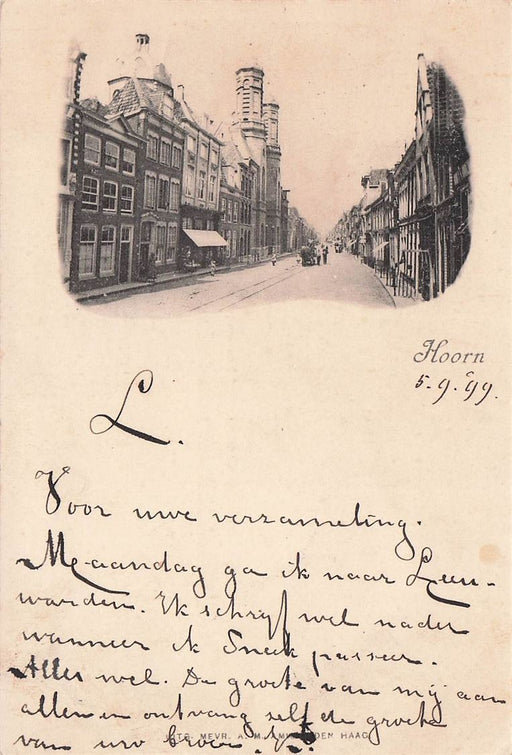 Hoorn
5.9.'99.
L.
Voor uwe verzameling.
Maandag ga ik naar Leeu-
warden. Ik schryf wel nader
wanneer ik Sneek passeer.
Alles wel. De groete van my aan
allen en ontvang zelf de groete
UITG. MEVR. A. M. DEN HAAG
van uw broer.